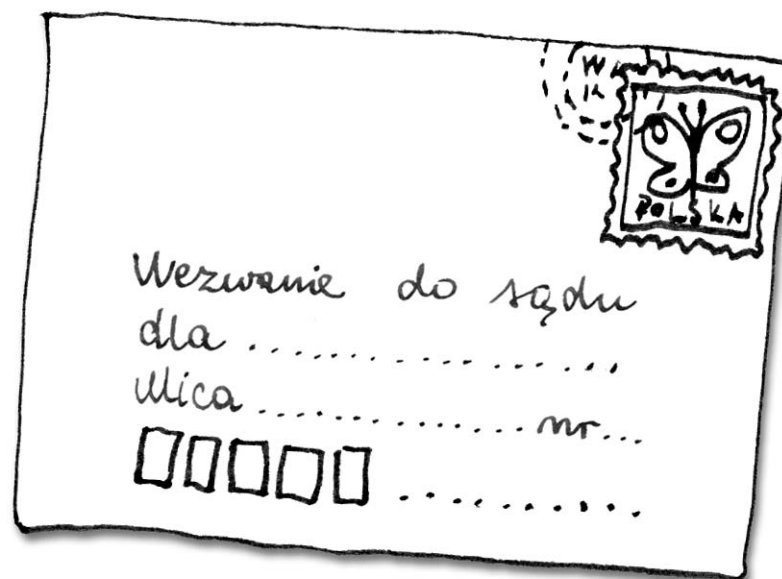 POLSKA
Wezwanie do sądu
dla ....................
ulica .................. nr...
..........